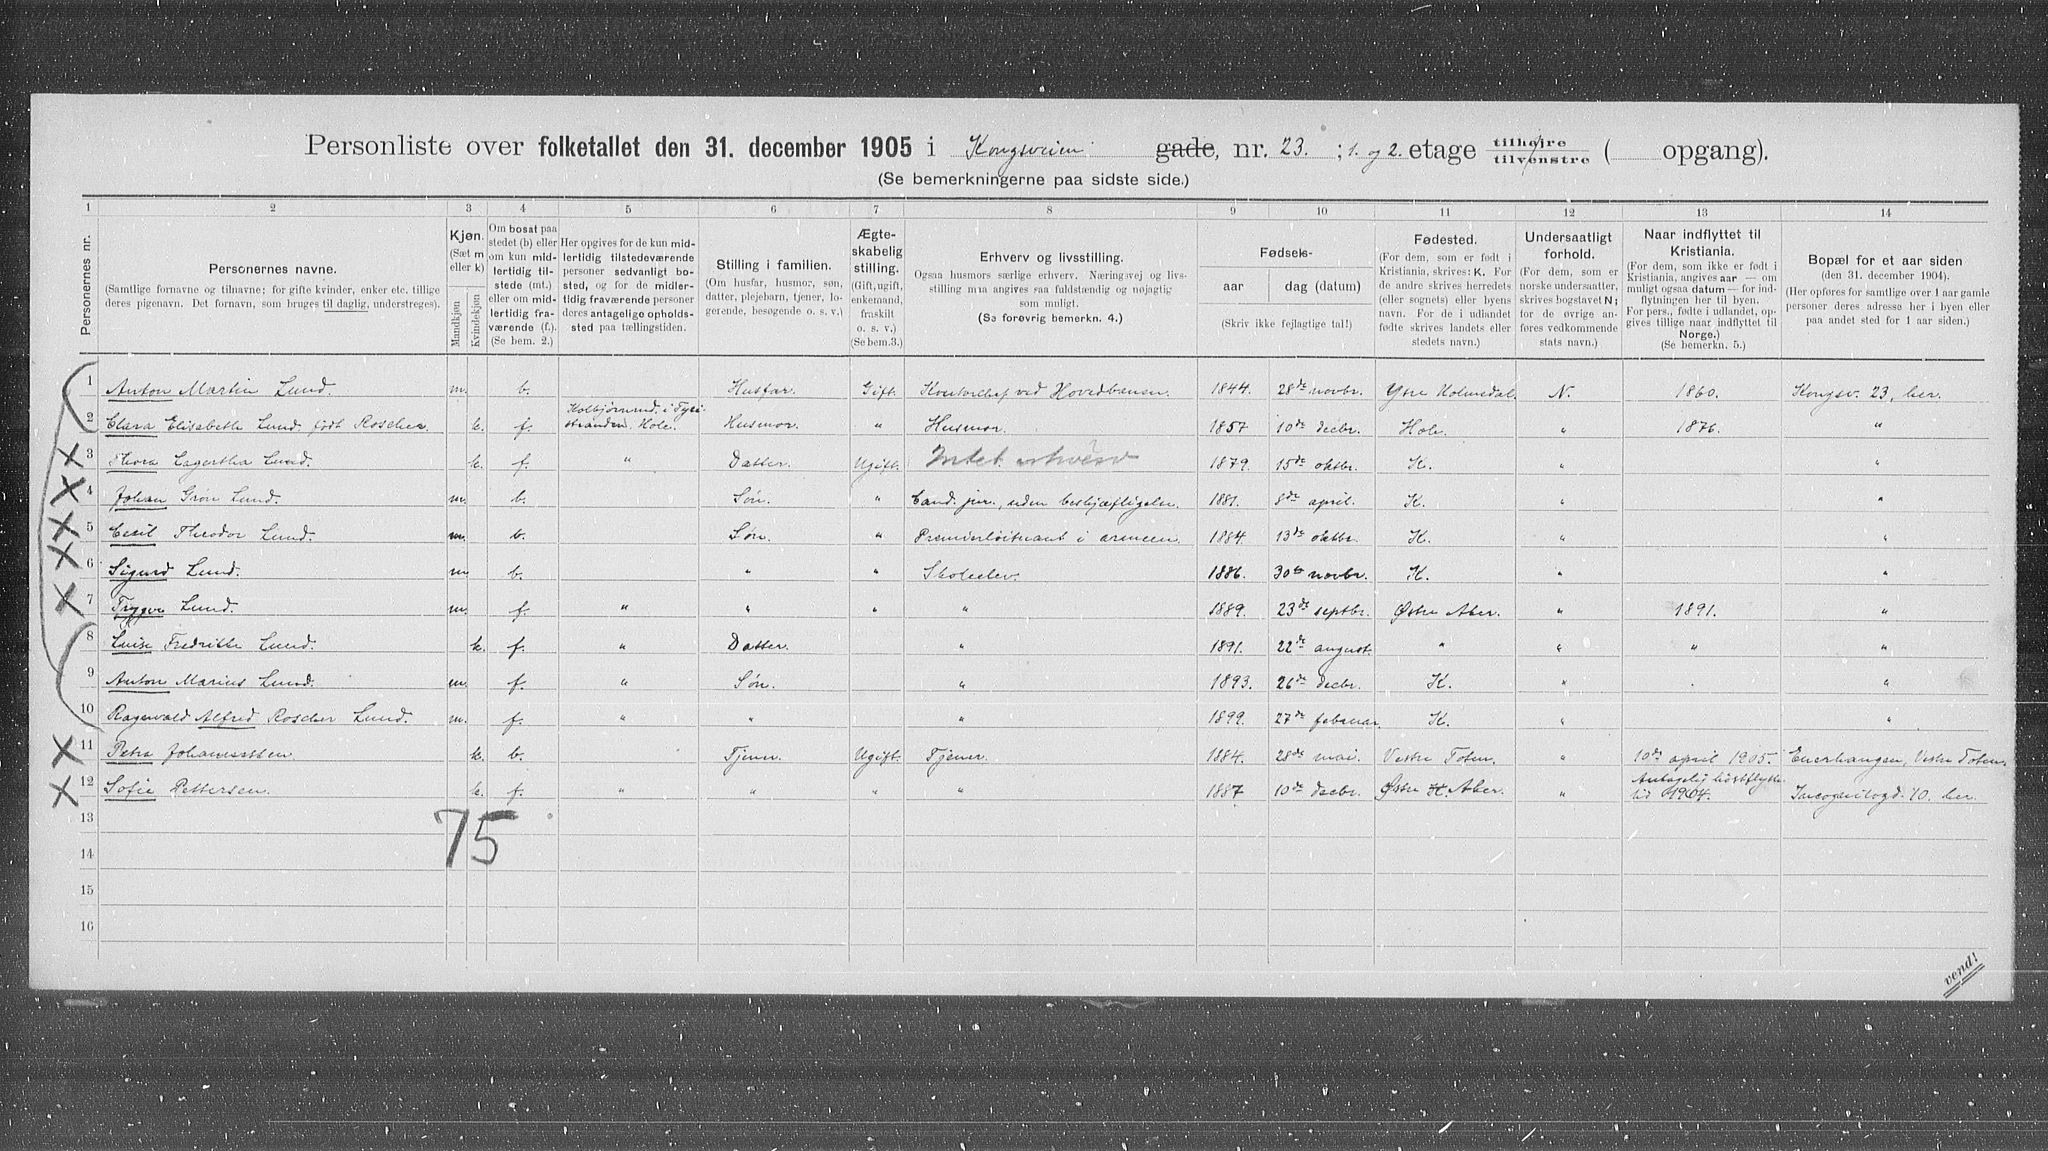 Personliste over folketallet den 31. december 1905 i Kongsveien gade, nr. 23. ; 1. og 2. etage tilhøjre tilvenstre ( opgang).
(Se bemerkningerne paa sidste side.)
1 2 3 4 5 6 7 8 9 10 11 12 13 14
Personernes nr.
Personernes navne.
(Samtlige fornavne og tilnavne; for gifte kvinder, enker etc. tillige
deres pigenavn. Det fornavn, som bruges til daglig, understreges).
Kjøn.
(Sæt m
eller k)
Mandkjøn
Kvindekjøn
Om bosat paa
stedet (b) eller
om kun mid-
lertidig til-
stede (mt.)
eller om mid-
lertidig fra-
værende (f.).
(Se bem. 2.)
Her opgives for de kun mid-
lertidig tilstedeværende
personer sedvanligt bo-
sted, og for de midler-
tidig fraværende personer
deres antagelige opholds-
sted paa tællingstiden.
Stilling i familien.
(Om husfar, husmor, søn,
datter, plejebarn, tjener, lo-
gerende, besøgende o. s. v.)
Ægte-
skabelig
stilling.
(Gift, ugift,
enkemand,
fraskilt
o. s. v.)
(Se bem.3.)
Erhverv og livsstilling.
Ogsaa husmors særlige erhverv. Næringsvej og livs-
stilling maa angives saa fuldstændig og nøjagtig
som muligt.
(Se forøvrig bemerkn. 4.)
Fødsels-
aar dag (datum)
(Skriv ikke fejlagtige tal!)
Fødested.
(For dem, som er født i
Kristiania, skrives: K. For
de andre skrives herredets
(eller sognets) eller byens
navn. For de i udlandet
fødte skrives landets eller
stedets navn.)
Undersaatligt
forhold.
(For dem, som er
norske undersaatter,
skrives bogstavet N;
for de øvrige an-
føres vedkommende
stats navn.)
Naar indflyttet til
Kristiania.
(For dem, som ikke er født i
Kristiania, angives aar — om
muligt ogsaa datum — for ind-
flytningen her til byen.
For pers., fødte i udlandet, op-
gives tillige naar indflyttet til
Norge.)
(Se bemerkn. 5.)
Bopæl for et aar siden
(den 31. december 1904).
(Her opføres for samtlige over 1 aar gamle
personer deres adresse her i byen eller
paa andet sted for 1 aar siden.)
1 Anton Martin Lund. m. b. Husfar. Gift. Kontorchef ved Hovedbanen 1844. 28de novbr. Ytre Holmedal. N. 1860. Kongsv. 23, her.
2 Clara Elisabeth Lund. født Roscher. k. f. Kolbjørnrud. i Tyri-
stranden. Hole. Husmor. " Husmor. 1857 10de decbr. Hole. " 1876. "
3 Thora Lagertha Lund. k. f. " Datter. Ugift. Intet erhverv 1879. 15de oktbr. K. " "
4 Johan Grøn Lund. m. b. Søn. " Cand. jur., uden beskjæftigelse. 1881. 8de april. K. " "
5 Cecil Theodor Lund. m. b. Søn. " Premierløitnant i armeen. 1884. 13de oktbr. K. " "
6 Sigurd Lund. m. b. " " Skoleelev. 1886. 30te novbr. K. " "
7 Trygve Lund. m. f. " " " " 1889. 23de septbr. Østre Aker. " 1891. "
8 Luise Fredrikke Lund. k. f. " Datter. " 1891. 22de august. " " " "
9 Anton Marius Lund. m. f. " Søn. " 1893. 26de decbr. K. " "
10 Ragnvald Alfred Roscher Lund. m. f. " " " 1899. 27de februar. K. " "
11 Petra Johannessen. k. b. Tjener. Ugift. Tjener. 1884. 28de mai. Vestre Toten. " 10de april 1905. Enerhaugen, Vestre Toten.
12 Sofie Pettersen. k. f. " " " " 1887 10de decbr. Østre K. Aker. " Antagelig høstflytte-
tid 1904. Incognitogd. 10. her.
13
75
14
15
16
vend!